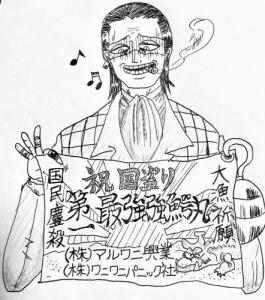 祝 国盗り
大魚祈願
第一最強強鰐丸
国民鏖殺
(株)マルワニ興業
(株)ワニワニパニック社